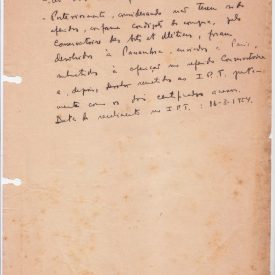 Posteriormente, considerando não terem sido
aferidos, conforme condições de compra, pelo
Conservatoire des Arts et Métiers, foram
devolvidos à Panambra, enviados a Paris,
submetidos à aferição no referido Conservatoire
e, depois, devolvidos ao I.P.T. juntamente
com os dois certificados anexos.
Data do recebimento no I.P.T. : 16-3-1954.